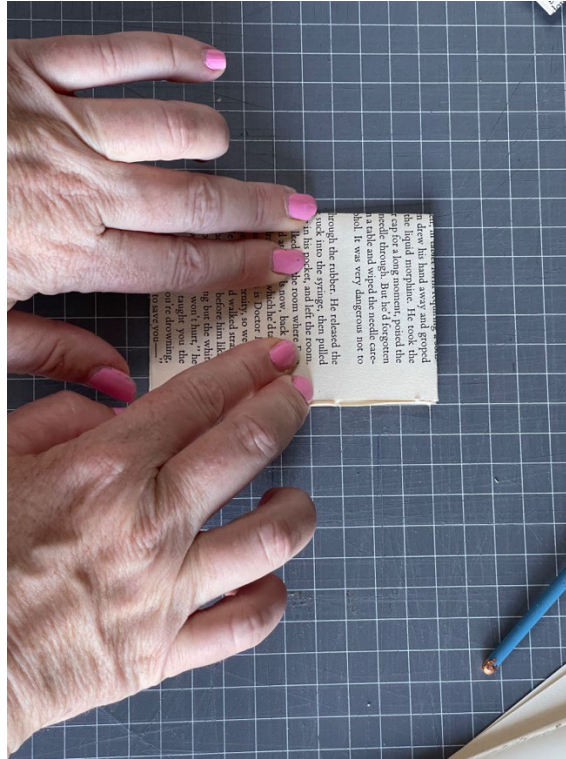 n drew his hand away and groped
the liquid morphine. He took the
r cap for a long moment, poised the
needle through. But he'd forgotten
n a table and wiped the needle care-
ohol. It was very dangerous not to
hrough the rubber. He released the
suck into the syringe, then pulled
in his pocket, and left the room.
the room where
now, back
which he'd
is Doctor
ernity, so we
d walked
before him
ng but the
won't hurt," he
taught you the
you're drowning,
to save you—"